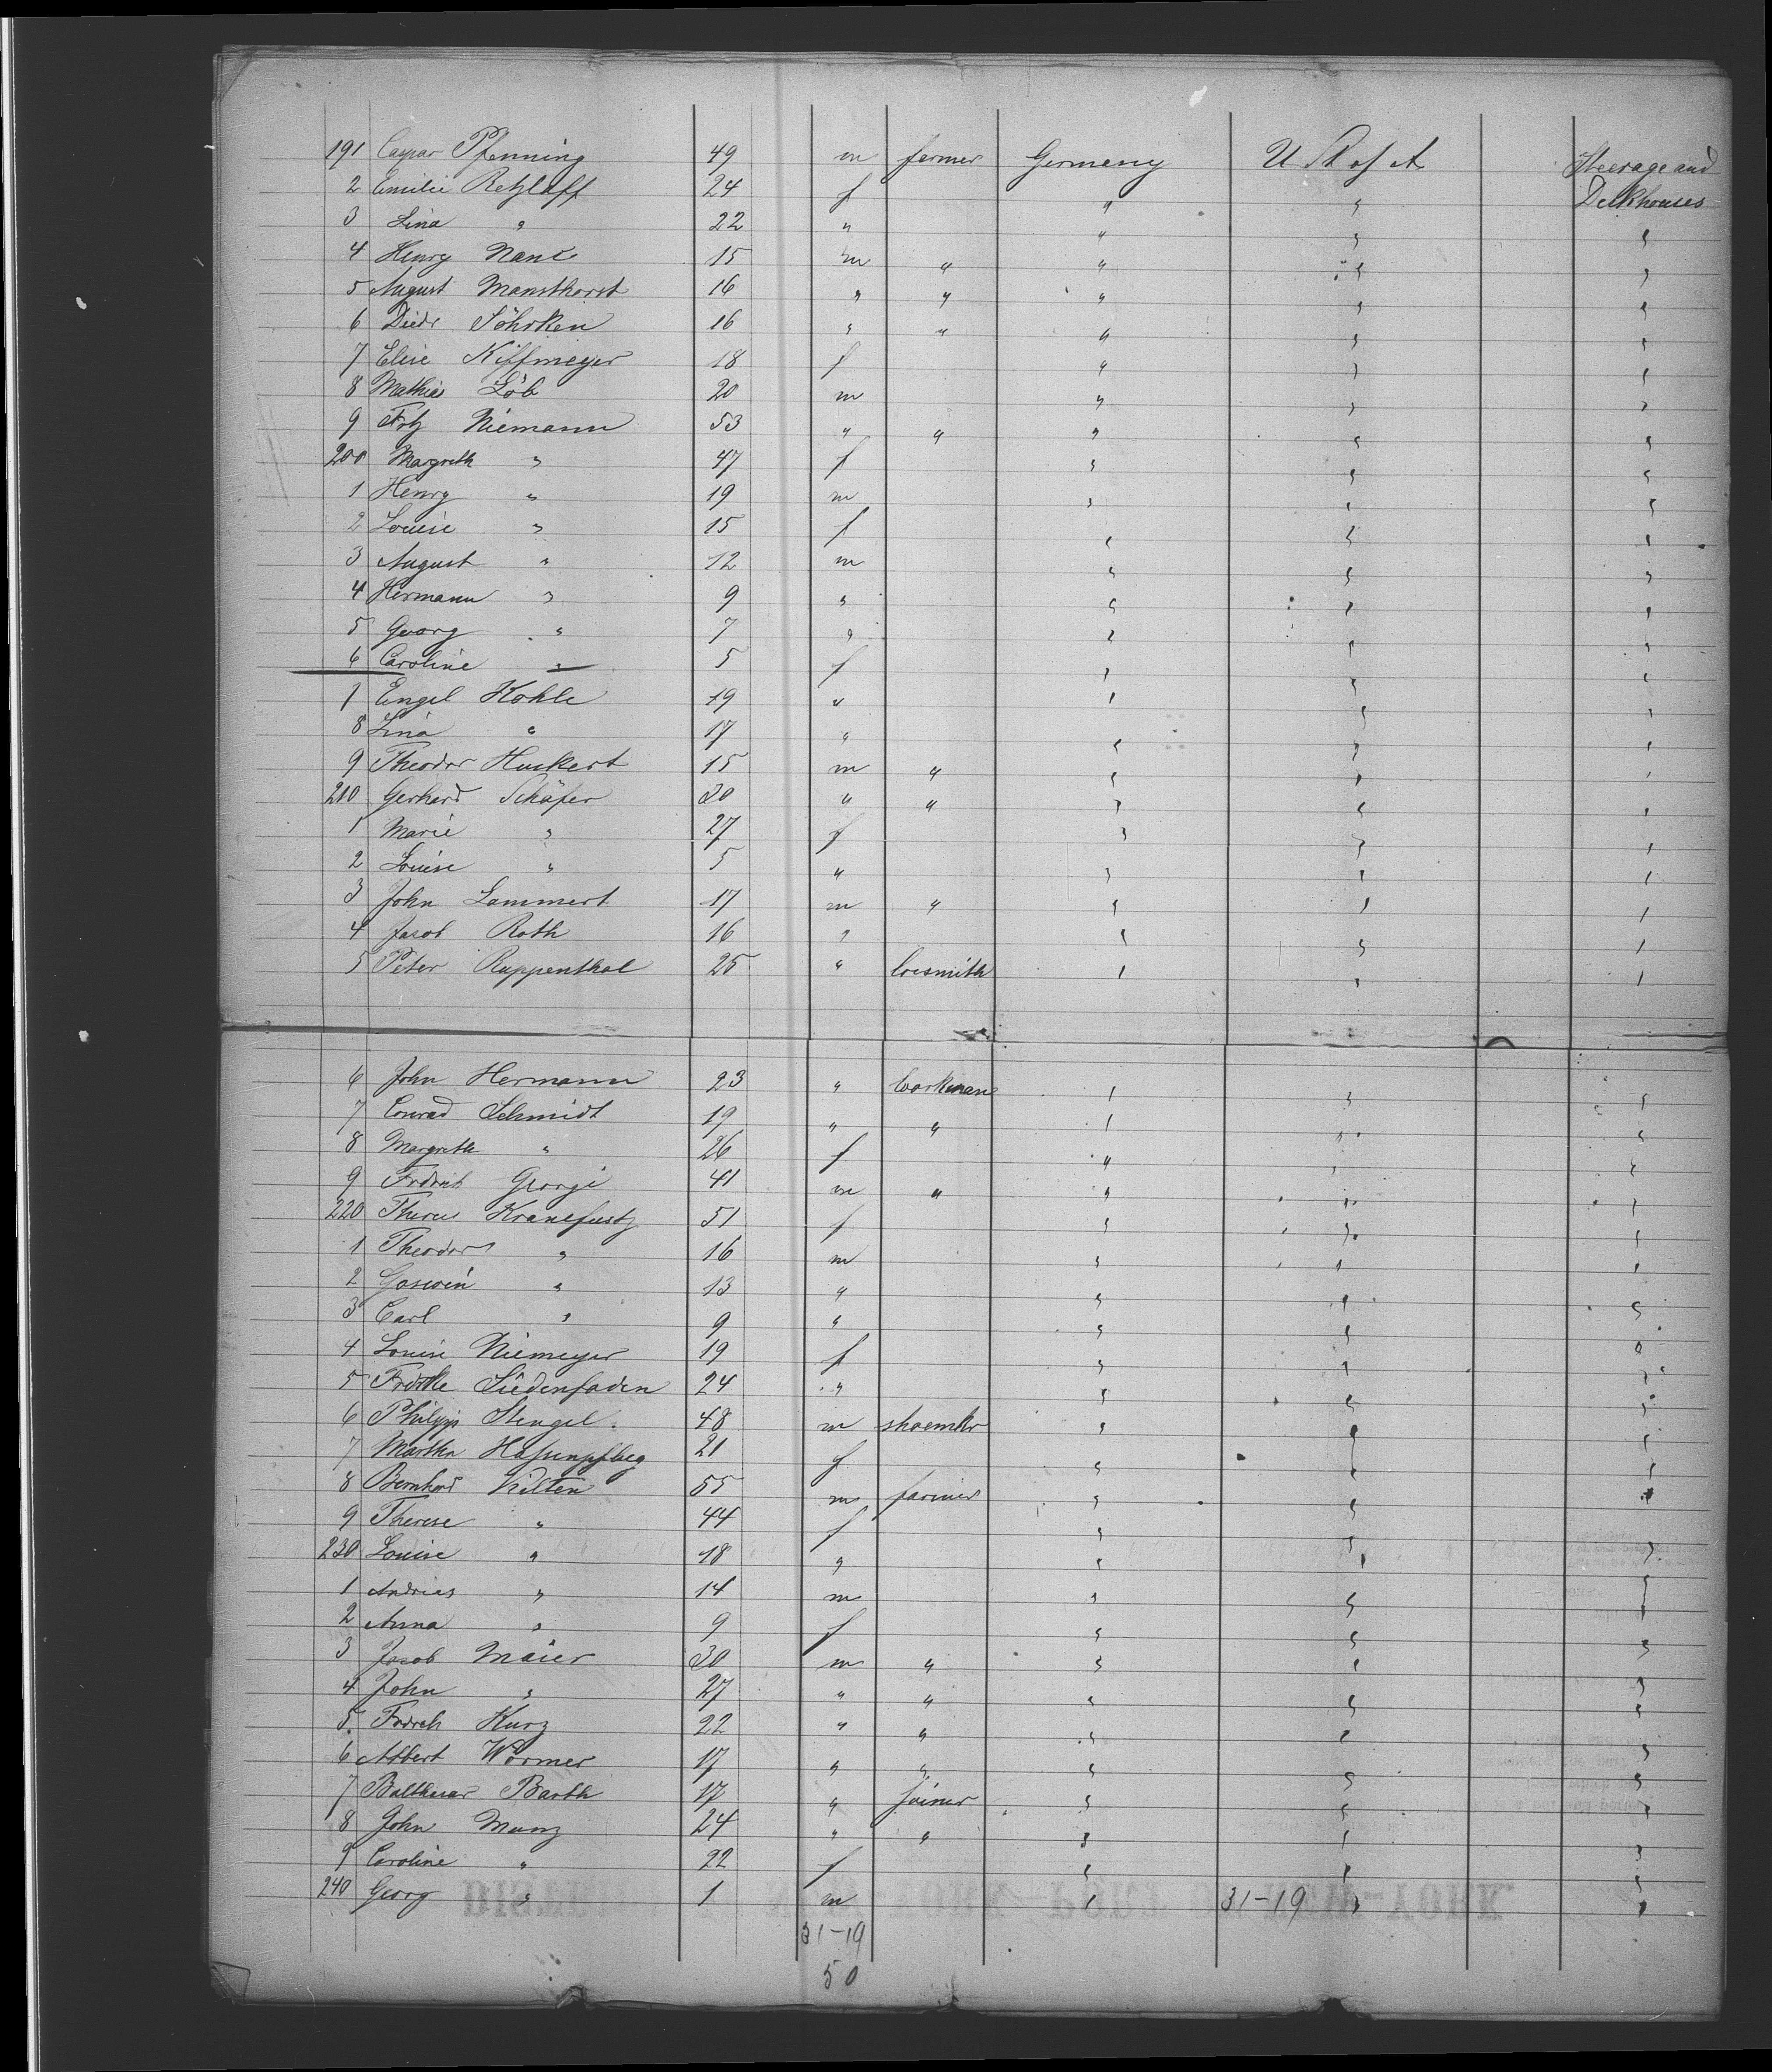 191 Caspar Pfenning 49 m farmer Germany U St of A Steerage and
2 Emilie Retzlaff 24 f " " Deckhouses
3 Lina " 22 " " " "
4 Henry Nane 15 m " " " "
5 August Mansthorst 16 " " " " "
6 Diedr Söhrken 16 " " " " "
7 Elise Kiffmeyer 18 f " " "
8 Mathias Löb 20 m " " "
9 Fritz Niemann 53 " " " " "
200 Margreth " 47 f " " "
1 Henry " 19 m " " "
2 Louise " 15 f " " "
3 August " 12 m " " "
4 Hermann " 9 " " " "
5 Georg " 7 " " " "
6 Caroline " 5 f " " "
7 Engel Kohle 19 " " " "
8 Lina " 17 " " " "
9 Theodor Huckert 15 m " " " "
210 Gerhard Schäfer 30 " " " " "
1 Marie " 27 f " " "
2 Louise " 5 " " " "
3 John Lammert 17 m " " " "
4 Jacob Roth 16 " " " "
5 Peter Ruppenthal 25 " locsmith " " "
6 John Hermann 23 " workman " " "
7 Conrad Schmidt 19 " " " " "
8 Margreth " 26 f " " "
9 Fredrich Georgi 41 m " " " "
220 Therese Kranefustz 51 f " " "
1 Theodor " 16 m " " "
2 Goswin " 13 " " " "
3 Carl " 9 " " " "
4 Louise Niemeyer 19 f " " "
5 Fredrke Siedenfaden 24 " " " "
6 Philipp Stengel 48 m shoemkr " " "
7 Martha 21 f " " "
8 Bernhard Vilten 55 m farmer " " "
9 Therese " 44 f " " "
230 Louise " 18 " " " "
1 Andreas " 14 m " " "
2 Anna " 9 f " " "
3 Jacob Maier 30 m " " " "
4 John " 27 " " " " "
5 Fredrch Kurz 22 " " " " "
6 Albert Wörmer 17 " " " " "
7 Balthasar Barth 17 " joiner " " "
8 John Munz 24 " " " " "
9 Caroline " 22 f " " "
240 Georg " 1 m " 31-19 " "
31-19
50